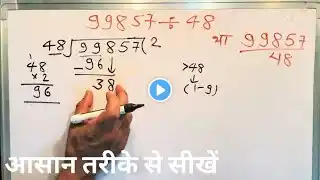 99857÷48
या 99857/48
48)99857(2
-96↓
38
48
×2
96
>48
↓
(1-9)
आसान तरीके से सीखें